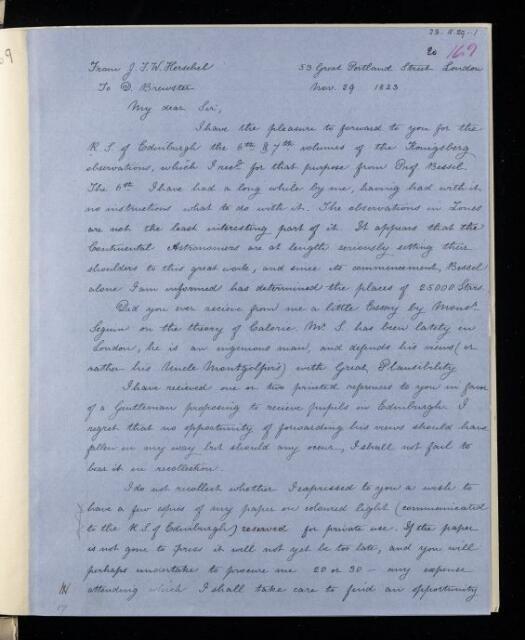 23.11.29-1
20 169
From J. F. W. Herschel 53 Great Portland Street London
To D. Brewster Nov. 29 1823
My dear Sir,
I have the pleasure to forward to you for the
R. S. of Edinburgh the 6th & 7th volumes of the Konigsberg
observations, which I recd for that purpose from Prof Bessel.
The 6th I have had a long while by me, having had with it
no instructions what to do with it. The observations in Zones
are not the least interesting part of it. It appears that the
Continental Astronomers are at length seriously setting their
shoulders to this great work, and since its commencement, Bessel
alone I am informed has determined the places of 25000 Stars.
Did you ever recieve from me a little Essay by Monsr.
Seguin on the theory of Caloric Mr. S. has been lately in
London, he is an ingenious man, and defends his views (or
rather his Uncle Montgolfier's) with Great Plausibility
I have recieved one or two printed references to you in favor
of a Gentleman proposing to recieve pupils in Edinburgh I
regret that no opportunity of forwarding his views should have
fallen in my way but should any occur, I shall not fail to
bear it in recollection.
I do not recollect whether I expressed to you a wish to
have a few copies of my paper on coloured light (communicated
to the R.S of Edinburgh) reserved for private use. If the paper
is not gone to press it will not yet be too late, and you will
perhaps undertake to procure me 20 or 30 - any expense
attending which I shall take care to find an opportunity